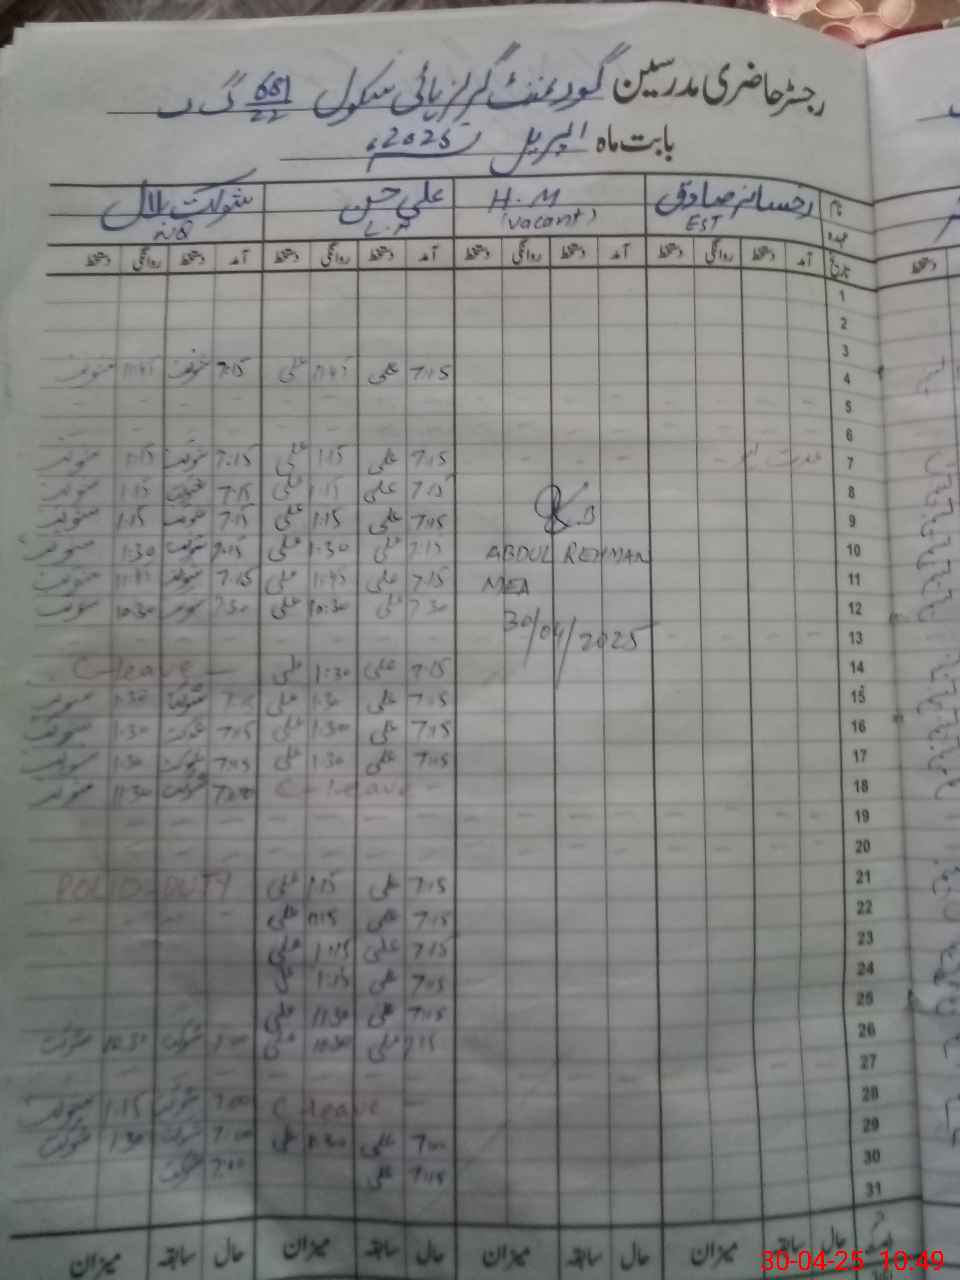 رجسٹر حاضری مدرسین گورنمنٹ گرلز ہائی سکول 681/22 گ ب
بابت ماہ اپریل 2025ء
نام رخسانہ صادق H.M علی حسن شوکت بلال
عہدہ EST (vacant) L.A N.Q
تاریخ آمد دستخط روانگی دستخط آمد دستخط روانگی دستخط آمد دستخط روانگی دستخط آمد دستخط روانگی دستخط
1
2
3
4 7:15 علی 11:45 علی 7:15 شوکت 11:45 شوکت
5
6
7 7:15 علی 1:15 علی 7:15 شوکت 1:15 شوکت
8 7:15 علی 1:15 علی 7:15 شوکت 1:15 شوکت
9 7:15 علی 1:15 علی 7:15 شوکت 1:15 شوکت
10 ABDUL REHMAN 7:15 علی 1:30 علی 7:15 شوکت 1:30 شوکت
11 MEA 7:15 علی 11:45 علی 7:15 شوکت 11:45 شوکت
12 30/04/2025 7:30 علی 10:30 علی 7:30 شوکت 10:30 شوکت
13
14 7:15 علی 1:30 علی C-leave
15 7:15 علی 1:30 علی شوکت 1:30 شوکت
16 7:15 علی 1:30 علی 7:15 شوکت 1:30 شوکت
17 7:15 علی 1:30 علی 7:15 شوکت 1:30 شوکت
18 C-leave شوکت 11:30 شوکت
19
20
21 7:15 علی 1:15 علی POLIO-DUTY
22 7:15 علی علی
23 7:15 علی علی
24 7:15 علی 1:15 علی
25 7:15 علی 11:30 علی
26 7:15 علی 10:30 علی 7:00 شوکت 10:30 شوکت
27
28 C-leave 7:00 شوکت 1:15 شوکت
29 7:00 علی علی 7:00 شوکت 1:30 شوکت
30 7:15 علی 7:00 شوکت
31
حال سابقہ میزان حال سابقہ میزان حال سابقہ میزان حال سابقہ میزان
30-04-25 10:49